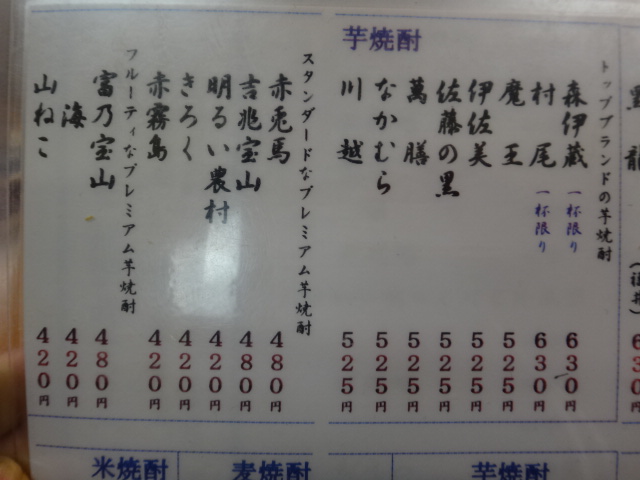 芋焼酎
トップブランドの芋焼酎
森伊蔵 一杯限り 630円
村尾 一杯限り 630円
魔王 525円
伊佐美 525円
佐藤の黒 525円
萬膳 525円
なかむら 525円
川越 525円
スタンダードなプレミアム芋焼酎
赤兎馬 480円
吉兆宝山 480円
明るい農村 420円
きろく 420円
赤霧島 420円
フルーティなプレミアム芋焼酎
富乃宝山 480円
海 420円
山ねこ 420円
芋焼酎
麦焼酎
米焼酎